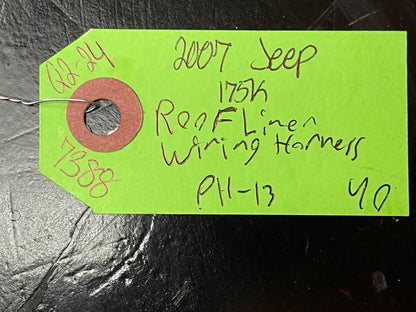 Q2-24
7388
2007 Jeep
175K
Roof Liner
Wiring Harness
P11-13
40